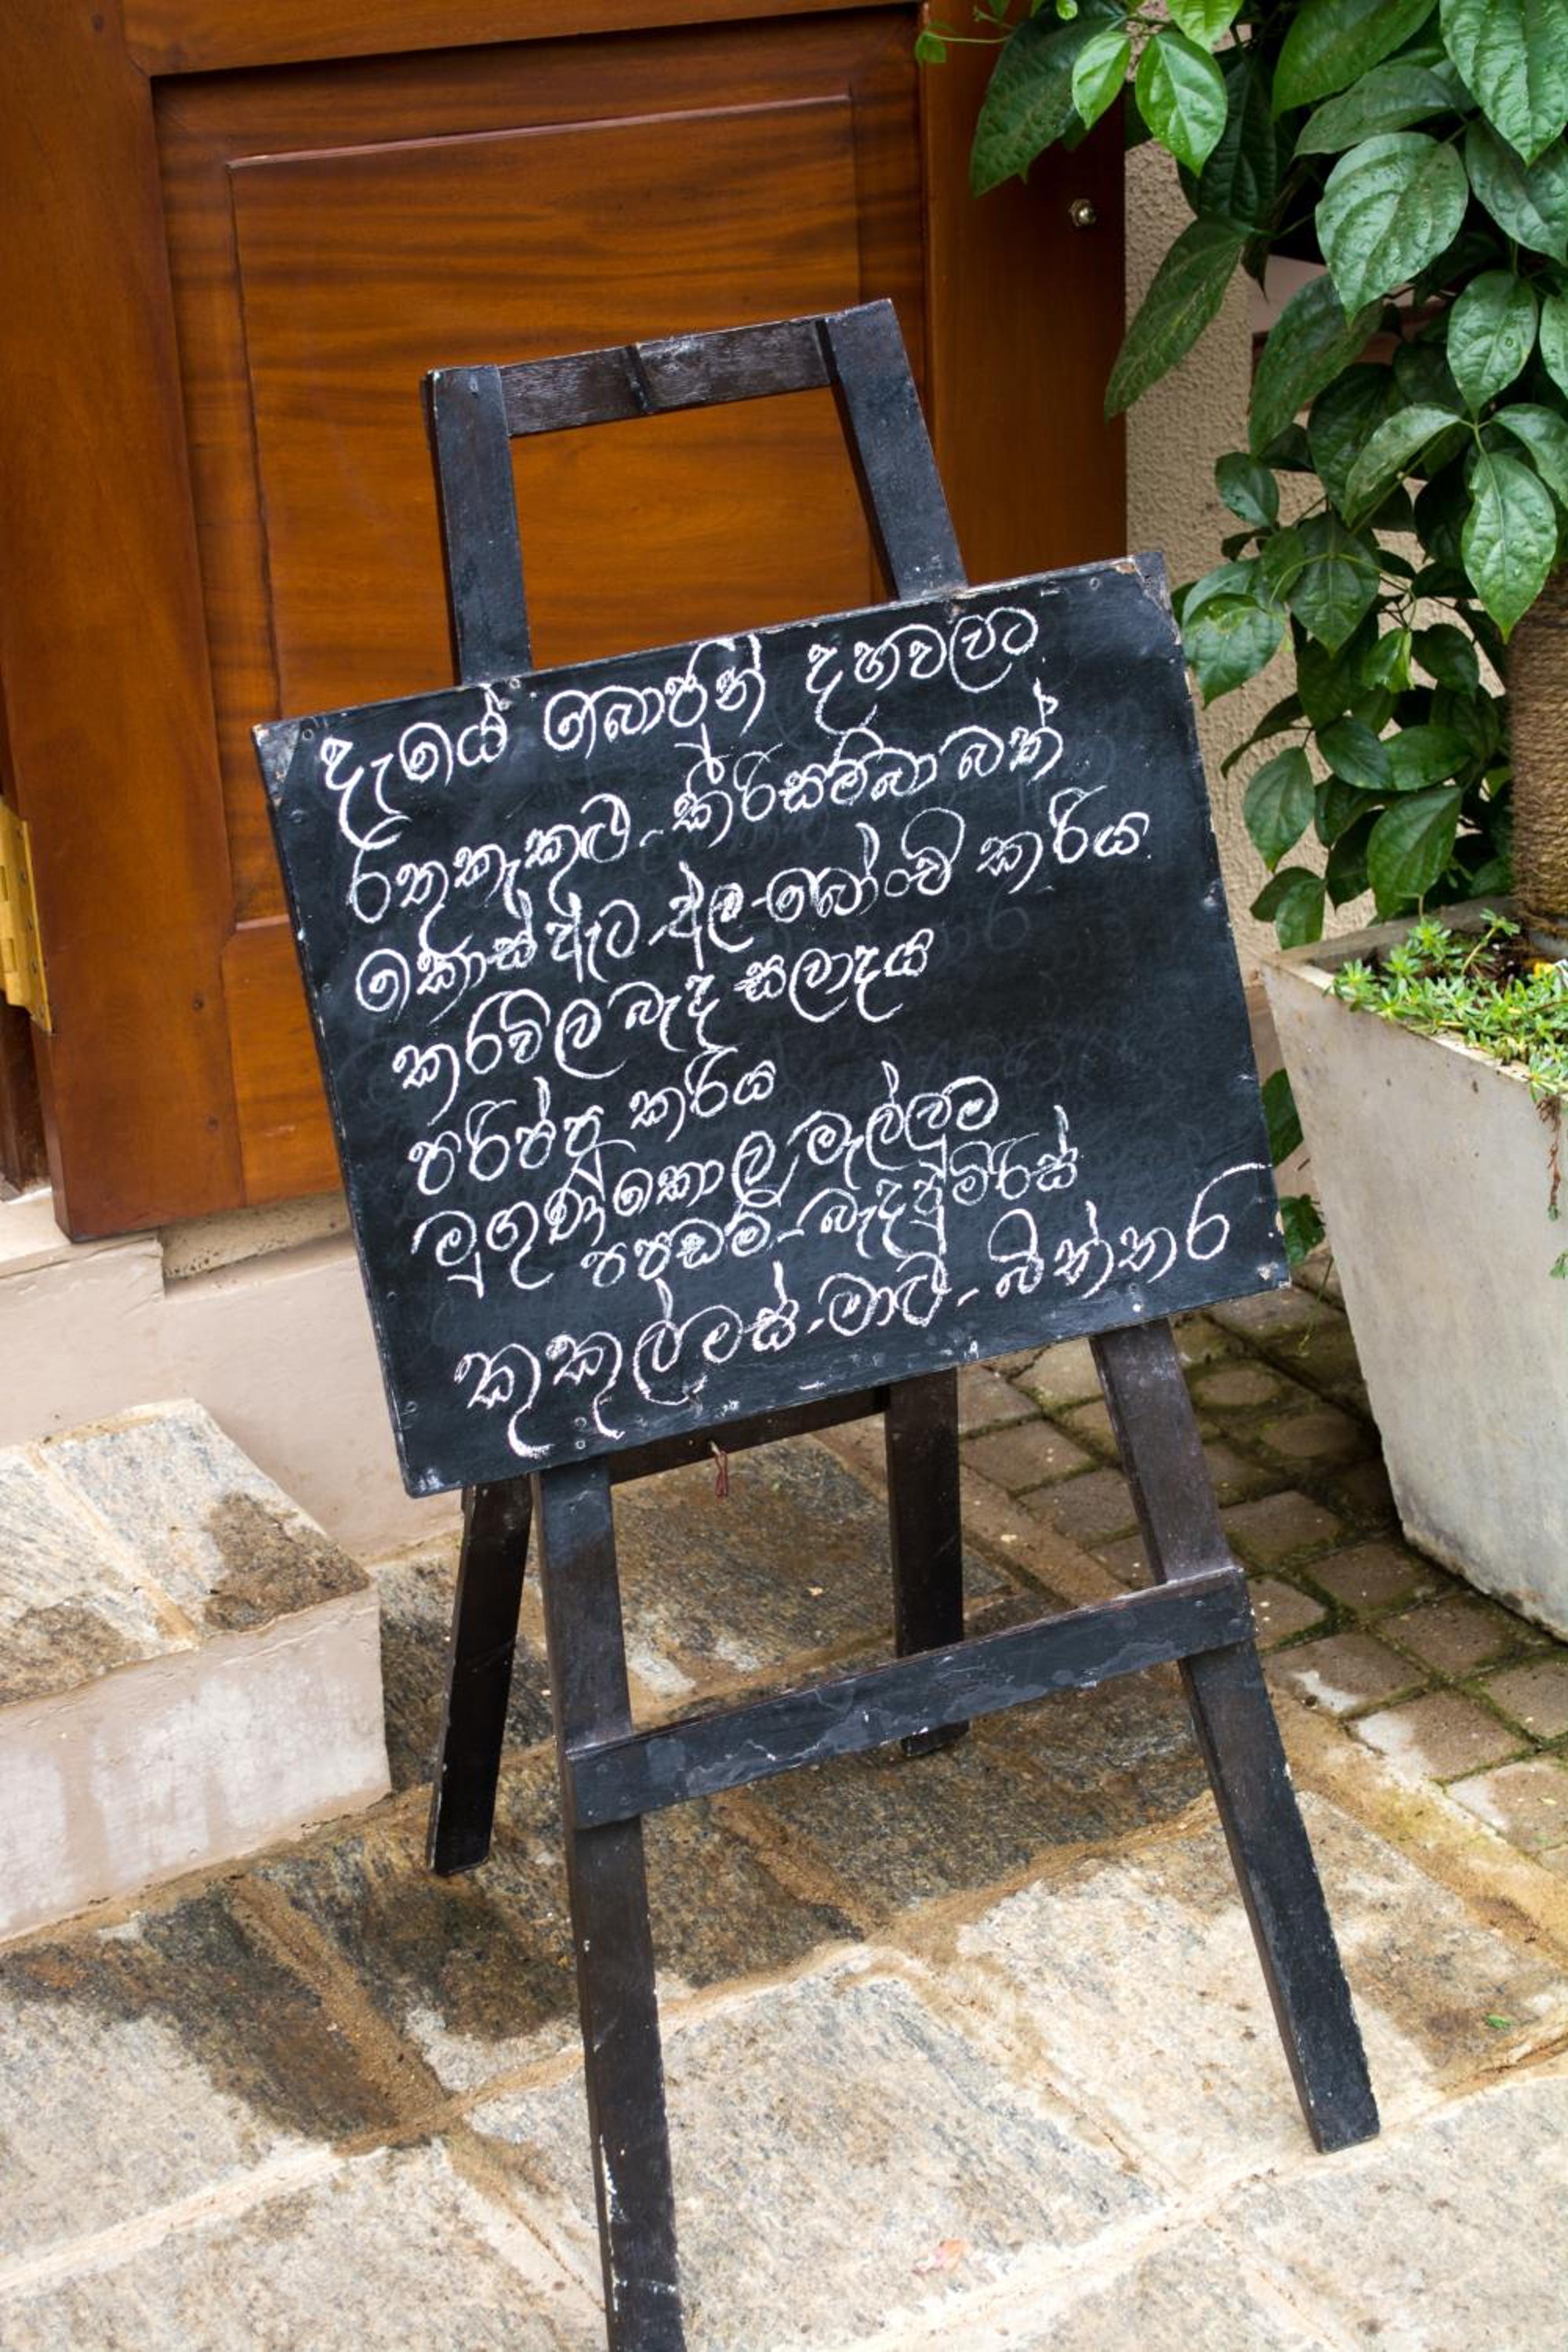 දැයේ බොජුන් දහවලට
රතුකැකුළු - කීරිසම්බා බත්
කොස් ඇට - ඇල - බෝංචි කරිය
කරවිල බැද සලාදය
පරිප්පු කරිය
මුගුණකොල මැල්ලුම
පපඩම් - බැදපුමිරිස්
කුකුල්මස් - මාළු - බිත්තර